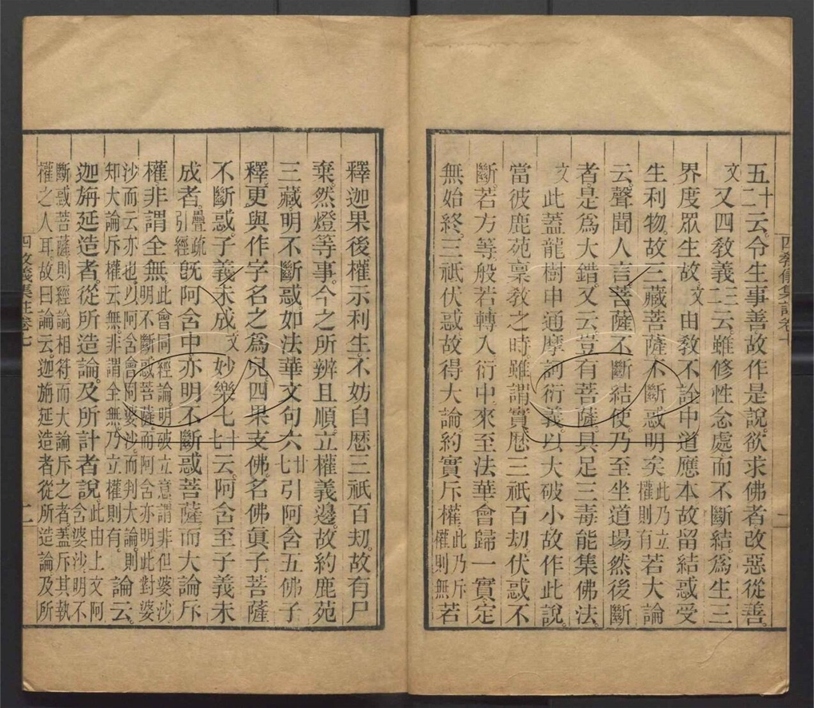 五十二云令生事善故作是說欲求佛者改惡從善
文又四教義三二云雖修性念處而不斷結為生三
界度眾生故文由教不詮中道應本故留結惑受
生利物故三藏菩薩不斷惑明矣此乃立權則有若大論
云聲聞人言菩薩不斷結使乃至坐道場然後斷
者是為大錯又云豈有菩薩具足三毒能集佛法
文此蓋龍樹申通摩訶衍義以大破小故作此說
當彼鹿苑稟教之時雖謂實歷三祇百劫伏惑不
斷若方等般若轉入衍中來至法華會歸一實定
無始終三祇伏惑故得大論約實斥權此乃斥權則無若
釋迦果後權示利生不妨自歷三祇百劫故有尸
棄然燈等事今之所辨且順立權義邊故約鹿苑
三藏明不斷惑如法華文句六廿七引阿含五佛子
釋更與作字名之為兒四果支佛名佛真子菩薩
不斷惑子義未成文妙樂七十七云阿含至子義未
成者疊疏引經既阿含中亦明不斷惑菩薩而大論斥
權非謂全無此會同經論明破立意謂非但婆沙明不斷惑菩薩而阿含亦明此對婆
沙而云亦也以阿含會同婆沙而判大論則知大論斥權云無非謂全無乃立權則有論云
迦旃延造者從所造論及所計者說此由上文阿含婆沙明不
斷惑菩薩則經論相符而大論斥之者蓋斥其執權之人耳故曰論云迦旃延造者從所造論及所
四教儀集註卷七
四教儀集註卷七 二